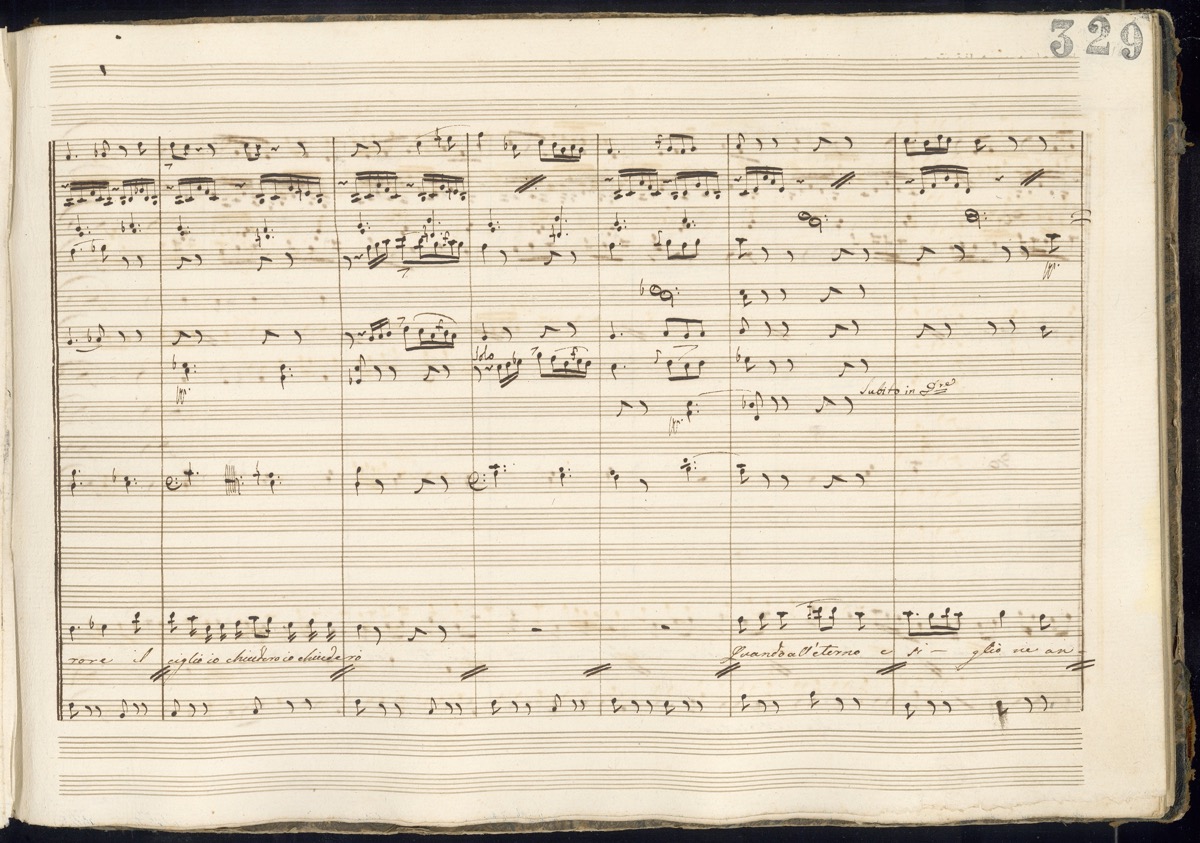 329
Solo
Subito in Dre
rore il ciglio io chiuderò io chiuderò Quando all'eterno e si - glio ne an =